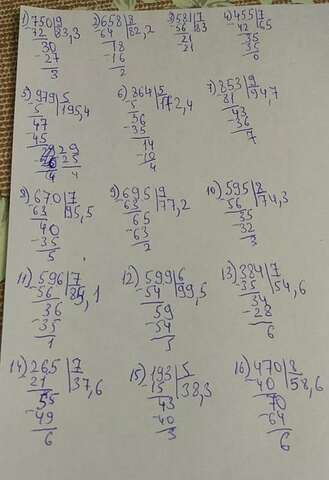 1) 750|9 2) 658|8 3) 581|7 4) 455|7
-72 |83,3 -64 |82,2 -56 |83 -42 |65
30 18 21 35
-27 -16 21 -35
3 2 0
5) 979|5 6) 864|5 7) 853|9
-5 |195,4 -5 |172,4 81 |94,7
47 36 43
-45 -35 -36
29 14 7
25 -10
4 4
8) 670|7 9) 695|9 10) 595|8
-63 |95,5 -63 |77,2 -56 |74,3
40 65 35
-35 -63 32
5 2 3
11) 596|7 12) 599|6 13) 384|7
-56 |85,1 -54 |99,5 -35 |54,6
36 59 34
-35 -54 -28
1 5 6
14) 265|7 15) 193|5 16) 470|8
21 |37,6 15 |38,3 -40 |58,6
55 43 70
-49 -40 -64
6 3 6